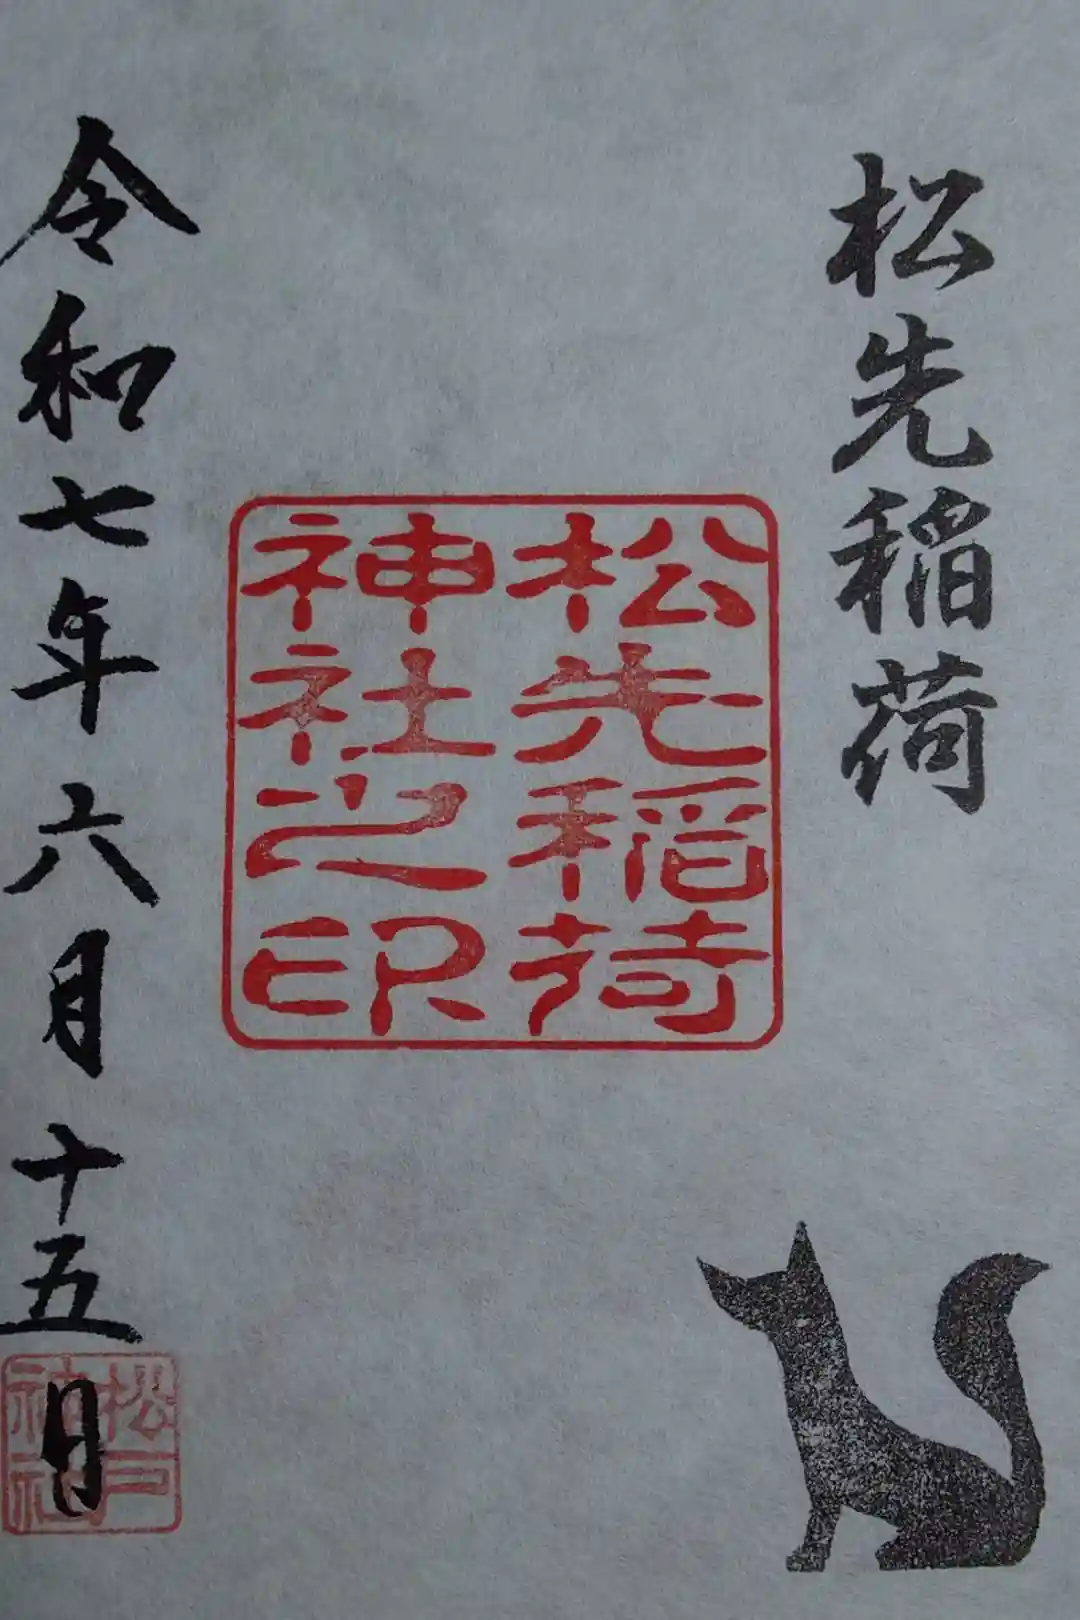 松先稲荷
松先稲荷
神社之印
令和七年六月十五日
松戸
神社